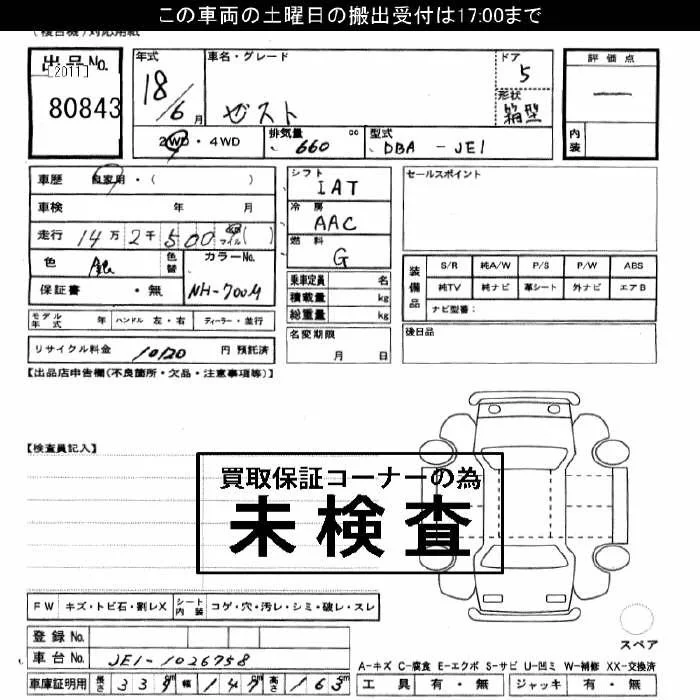 この車両の土曜日の搬出受付は17:00まで
(複合機)対応用紙
出品No. [2011] 80843
年式 18/6月
車名・グレード ゼスト
ドア 5
形状 箱型
評価点 —
内装
2WD・4WD
排気量 660 cc
型式 DBA - JE1
車歴 自家用・( )
車検 年 月
走行 14万2千500 km マイル ( )
色 銀 色替
カラーNo. NH-700M
保証書 ・無
モデル年式 年 ハンドル 左・右 ディーラー・並行
リサイクル料金 10120 円 預託済
シフト IAT
冷房 AAC
燃料 G
乗車定員 名
積載量 kg
総重量 kg
名変期限 月 日
セールスポイント
装備品 S/R 純A/W P/S P/W ABS
純TV 純ナビ 革シート 外ナビ エアB
ナビ型番:
後日品
【出品店申告欄(不良箇所・欠品・注意事項等)】
【検査員記入】
買取保証コーナーの為
未検査
FW キズ・トビ石・割レX シート内装 コゲ・穴・汚レ・シミ・破レ・スレ
登録No.
車台No. JE1-1026758
車庫証明用 長さ 339cm 幅 147cm 高さ 163cm
スペア
A-キズ C-腐食 E-エクボ S-サビ U-凹ミ W-補修 XX-交換済
工具 有・無 ジャッキ 有・無